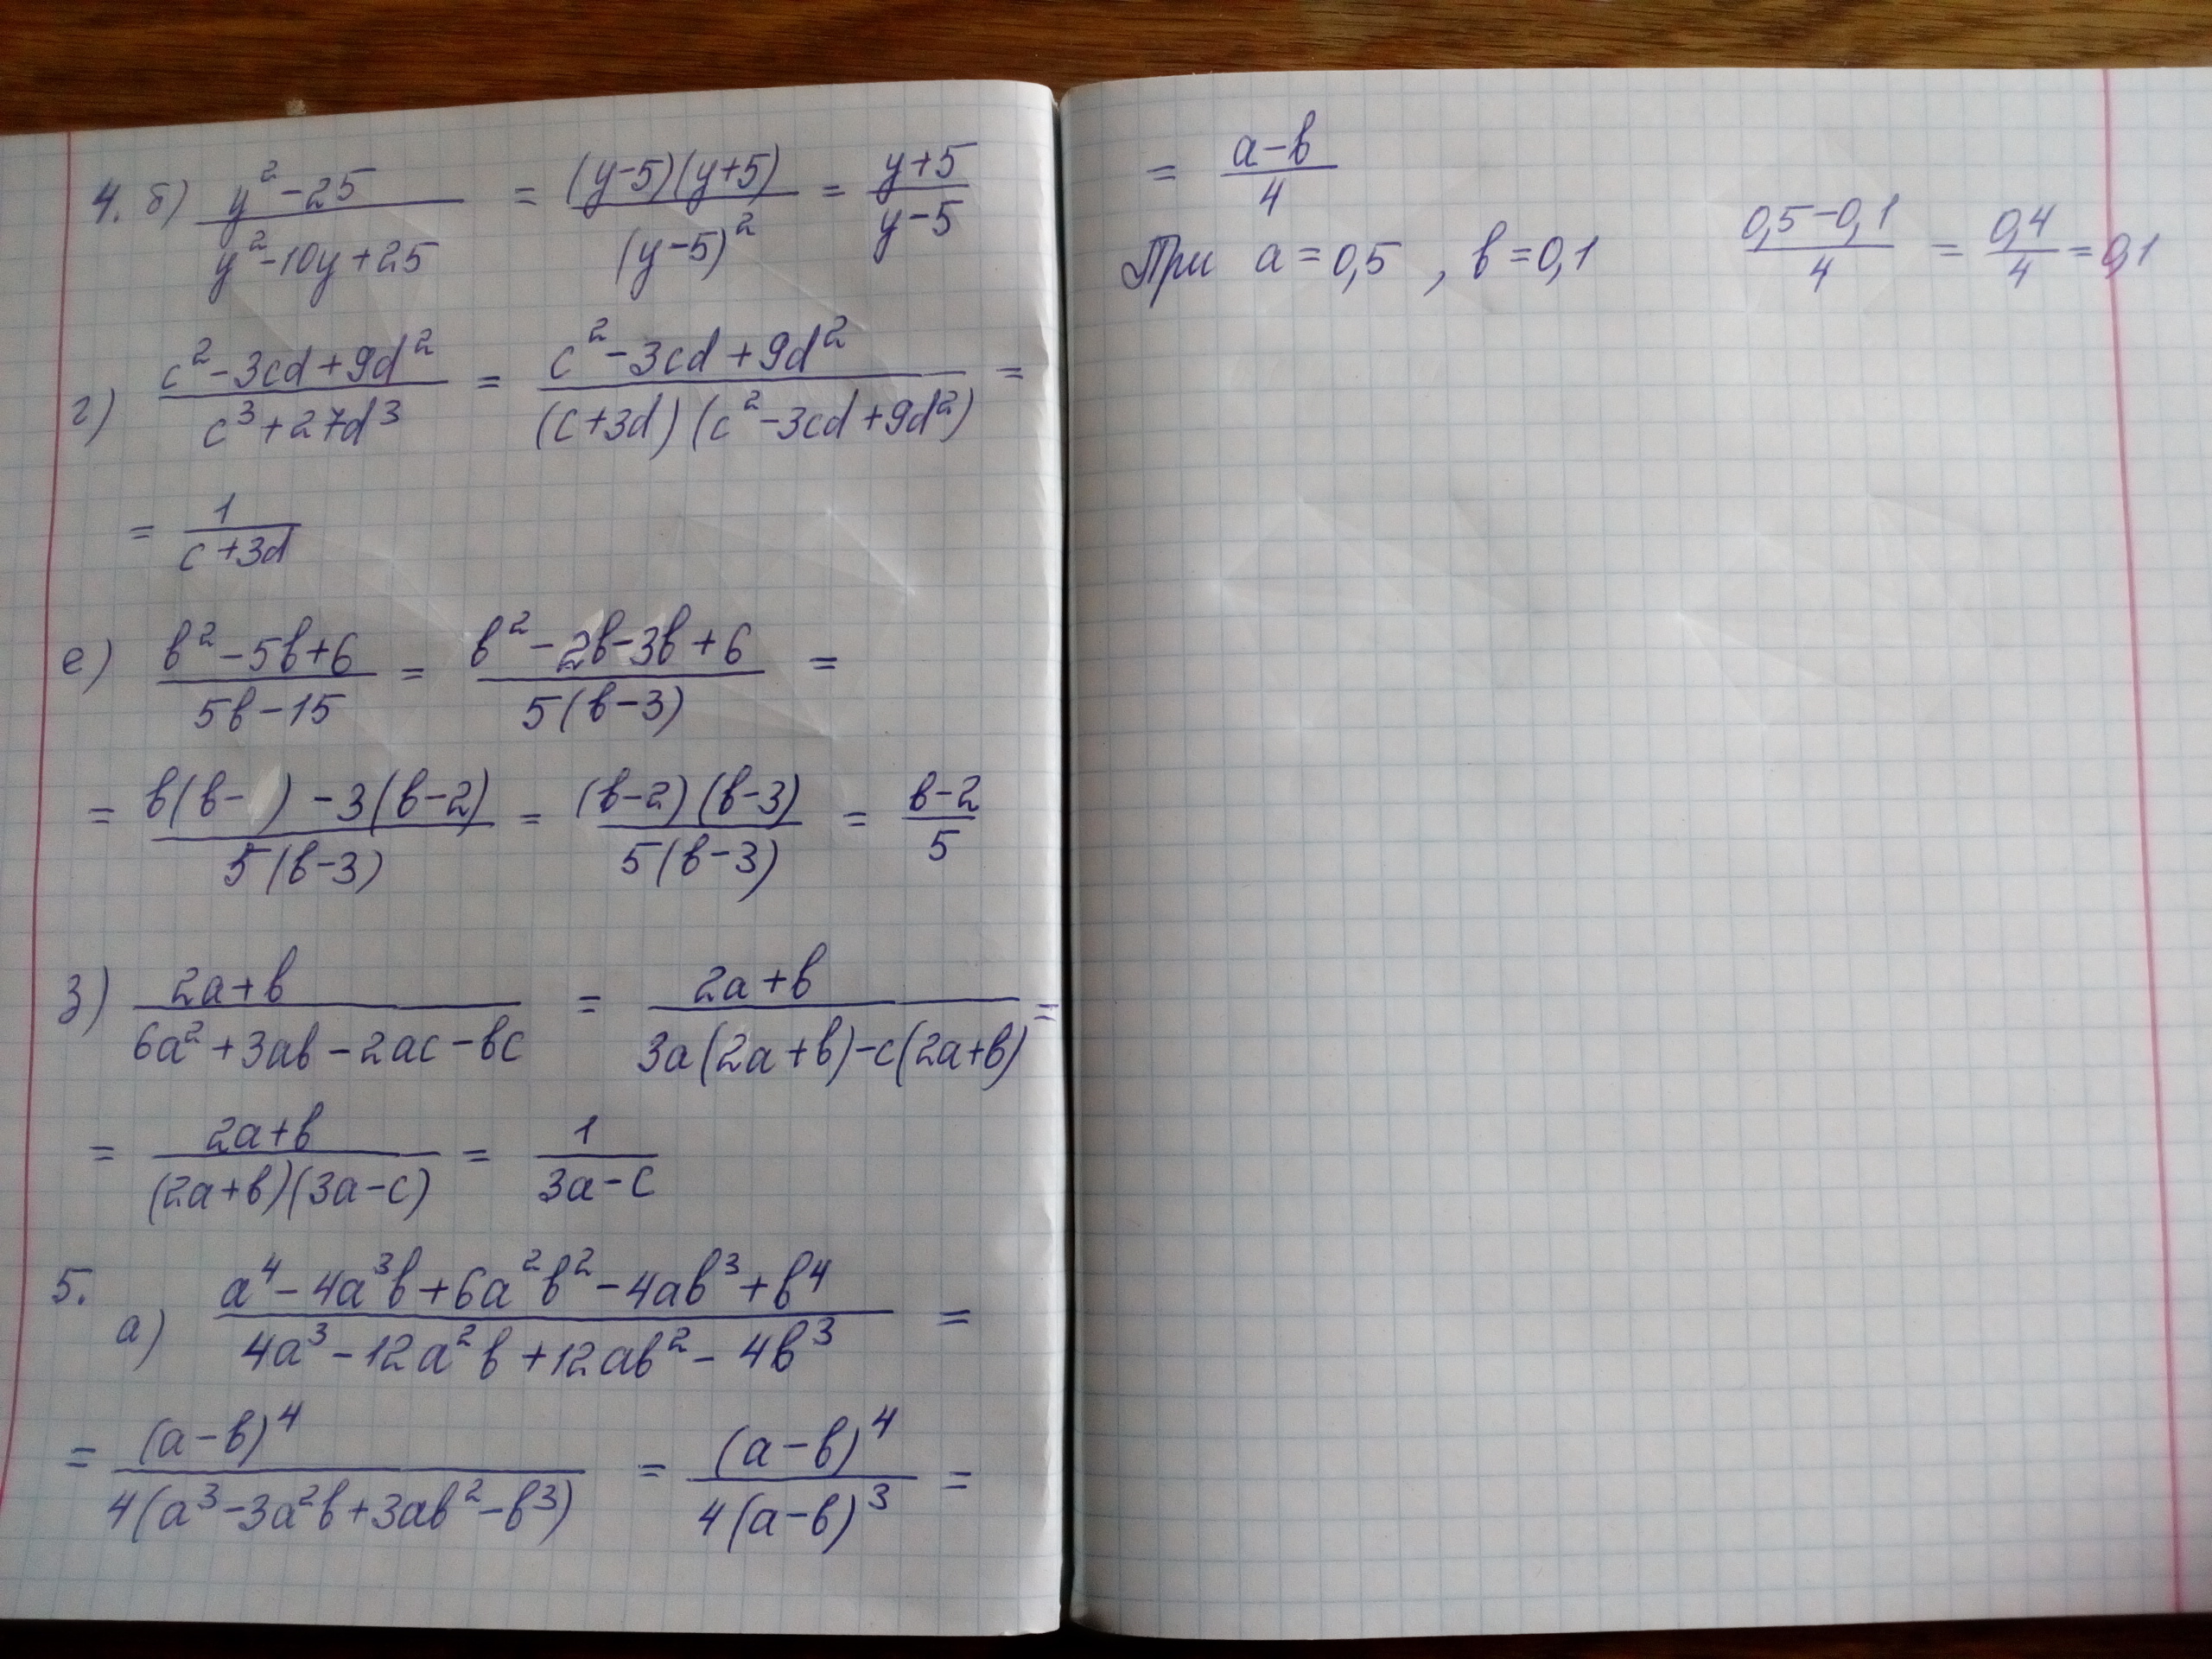 4. б) (y² - 25)/(y² - 10y + 25) = ((y-5)(y+5))/((y-5)²) = (y+5)/(y-5)
г) (c² - 3cd + 9d²)/(c³ + 27d³) = (c² - 3cd + 9d²)/((c+3d)(c² - 3cd + 9d²)) =
= 1/(c + 3d)
е) (в² - 5в + 6)/(5в - 15) = (в² - 2в - 3в + 6)/(5(в-3)) =
= (в(в- ) - 3(в-2))/(5(в-3)) = ((в-2)(в-3))/(5(в-3)) = (в-2)/5
з) (2a+в)/(6a² + 3aв - 2ac - вc) = (2a+в)/(3a(2a+в) - c(2a+в)) =
= (2a+в)/((2a+в)(3a-c)) = 1/(3a-c)
5. a) (a⁴ - 4a³в + 6a²в² - 4aв³ + в⁴)/(4a³ - 12a²в + 12aв² - 4в³) =
= (a-в)⁴/(4(a³ - 3a²в + 3aв² - в³)) = (a-в)⁴/(4(a-в)³) =
= (a-в)/4
При a = 0,5 , в = 0,1 (0,5-0,1)/4 = 0,4/4 = 0,1